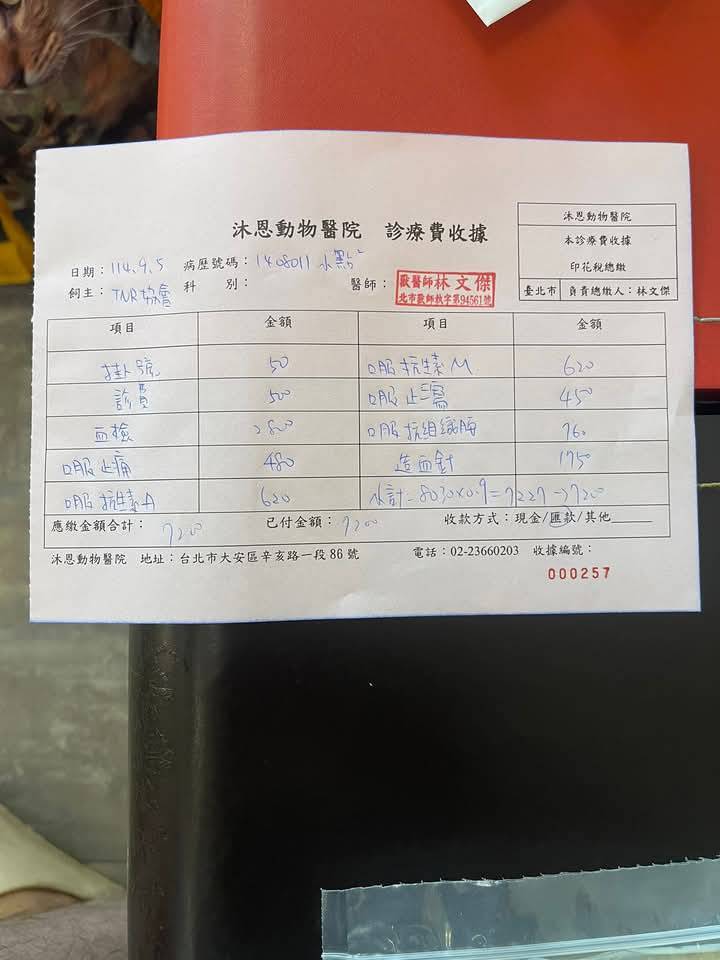 沐恩動物醫院 診療費收據
沐恩動物醫院
本診療費收據
印花稅總繳
臺北市 負責總繳人：林文傑
日期：114.9.5 病歷號碼：1408011 小點²
飼主：TNR協會 科 別： 醫師：
獸醫師林文傑
北市獸師執字第94561號
項目 金額 項目 金額
掛號 50 口服抗生素M 620
診費 500 口服止瀉 450
血檢 2800 口服抗組織胺 760
口服止痛 480 造血針 1750
口服抗生素A 620 小計=8030×0.9=7227→7200
應繳金額合計：7200 已付金額：7200 收款方式：現金/匯款/其他______
沐恩動物醫院 地址：台北市大安區辛亥路一段86號 電話：02-23660203 收據編號：
000257